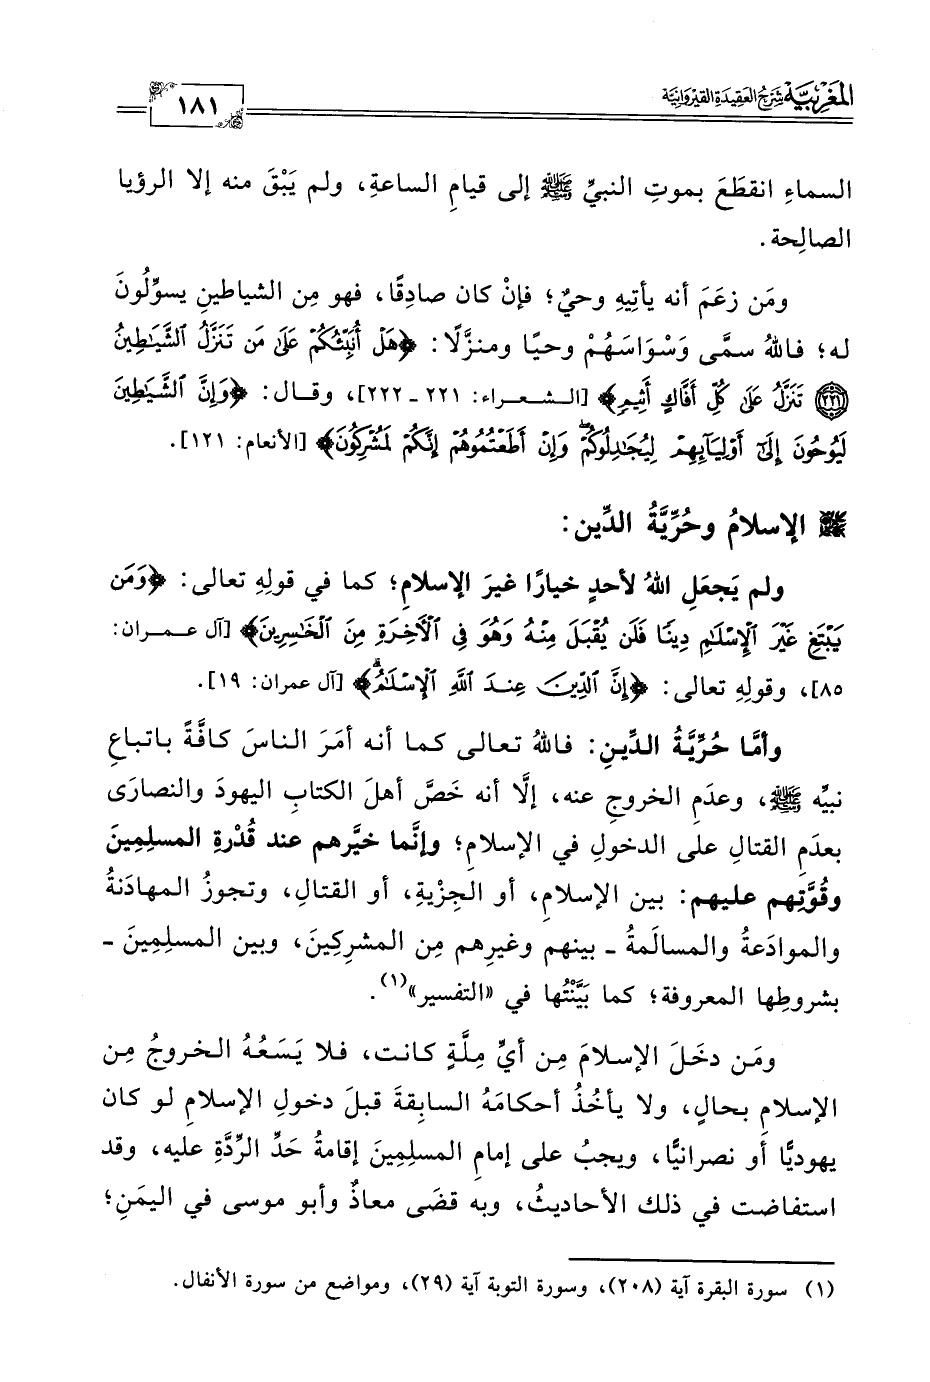 المغربية شرح العقيدة القيروانية
١٨١
السماءِ انقطَعَ بموتِ النبيِّ ﷺ إلى قيامِ الساعةِ، ولم يَبْقَ منه إلا الرؤيا
الصالِحة.
ومَن زعَمَ أنه يأتيهِ وحيٌ؛ فإنْ كان صادِقًا، فهو مِن الشياطينِ يسوِّلُونَ
له؛ فاللهُ سمَّى وَسْوَاسَهُمْ وحيًا ومنزَّلًا: ﴿هَلْ أُنَبِّئُكُمْ عَلَىٰ مَن تَنَزَّلُ ٱلشَّيَٰطِينُ
(٢٢١) تَنَزَّلُ عَلَىٰ كُلِّ أَفَّاكٍ أَثِيمٍ﴾ [الشعراء: ٢٢١ ـ ٢٢٢]، وقال: ﴿وَإِنَّ ٱلشَّيَٰطِينَ
لَيُوحُونَ إِلَىٰٓ أَوْلِيَآئِهِمْ لِيُجَٰدِلُوكُمْۖ وَإِنْ أَطَعْتُمُوهُمْ إِنَّكُمْ لَمُشْرِكُونَ﴾ [الأنعام: ١٢١].
الإسلامُ وحُرِّيَّةُ الدِّين:
ولم يَجعَلِ اللهُ لأحدٍ خيارًا غيرَ الإسلامِ؛ كما في قولِهِ تعالى: ﴿وَمَن
يَبْتَغِ غَيْرَ ٱلْإِسْلَٰمِ دِينًا فَلَن يُقْبَلَ مِنْهُ وَهُوَ فِى ٱلْأَخِرَةِ مِنَ ٱلْخَٰسِرِينَ﴾ [آل عمران:
٨٥]، وقولِهِ تعالى: ﴿إِنَّ ٱلدِّينَ عِندَ ٱللَّهِ ٱلْإِسْلَٰمُۗ﴾ [آل عمران: ١٩].
وأمَّا حُرِّيَّةُ الدِّينِ: فاللهُ تعالى كما أنه أمَرَ الناسَ كافَّةً باتباعِ
نبيِّه ﷺ، وعدَمِ الخروجِ عنه، إلَّا أنه خَصَّ أهلَ الكتابِ اليهودَ والنصارَى
بعدَمِ القتالِ على الدخولِ في الإسلامِ؛ وإنَّما خيَّرهم عند قُدْرةِ المسلِمِينَ
وقُوَّتِهم عليهم: بين الإسلامِ، أو الجِزْيةِ، أو القتالِ، وتجوزُ المهادَنةُ
والموادَعةُ والمسالَمةُ ـ بينهم وغيرِهم مِن المشركِينَ، وبين المسلِمِينَ ـ
بشروطِها المعروفة؛ كما بَيَّنْتُها في «التفسير»(١).
ومَن دخَلَ الإسلامَ مِن أيِّ مِلَّةٍ كانت، فلا يَسَعُهُ الخروجُ مِن
الإسلامِ بحالٍ، ولا يأخُذُ أحكامَهُ السابِقةَ قبلَ دخولِ الإسلامِ لو كان
يهوديًّا أو نصرانيًّا، ويجبُ على إمامِ المسلِمِينَ إقامةُ حَدِّ الرِّدَّةِ عليه، وقد
استفاضت في ذلك الأحاديثُ، وبه قضَى معاذٌ وأبو موسى في اليمَنِ؛
(١) سورة البقرة آية (٢٠٨)، وسورة التوبة آية (٢٩)، ومواضع من سورة الأنفال.